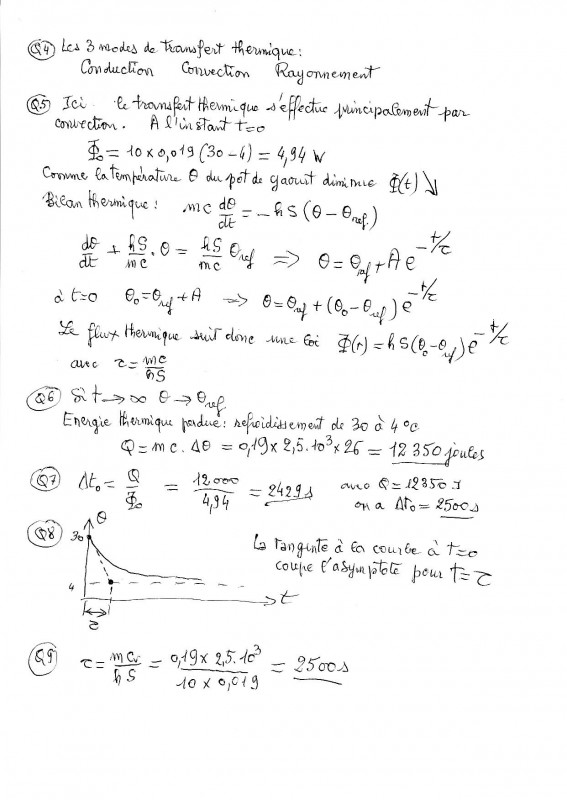 Q4 Les 3 modes de transfert thermique :
Conduction Convection Rayonnement
Q5 Ici le transfert thermique s'effectue principalement par
convection. A l'instant t=0
Φ₀ = 10 × 0,019 (30 - 4) = 4,94 W
Comme la température θ du pot de yaourt diminue Φ(t) ↘
Bilan thermique : mc dθ/dt = - hS (θ - θref.)
dθ/dt + hS/mc . θ = hS/mc θref ⇒ θ = θref + A e^(-t/τ)
à t=0 θ₀ = θref + A ⇒ θ = θref + (θ₀ - θref) e^(-t/τ)
Le flux thermique suit donc une loi Φ(t) = hS(θ₀ - θref) e^(-t/τ)
avec τ = mc/hS
Q6 Si t → ∞ θ → θref
Energie thermique perdue : refroidissement de 30 à 4 °C
Q = mc . Δθ = 0,19 × 2,5.10³ × 26 = 12 350 joules
Q7 Δt₀ = Q/Φ₀ = 12000/4,94 = 2429 s avec Q = 12350 J
on a Δt₀ = 2500 s
Q8 30 θ
La tangente à la courbe à t=0
coupe l'asymptote pour t = τ
4 t
τ
Q9 τ = mc/hS = 0,19 × 2,5.10³ / 10 × 0,019 = 2500 s